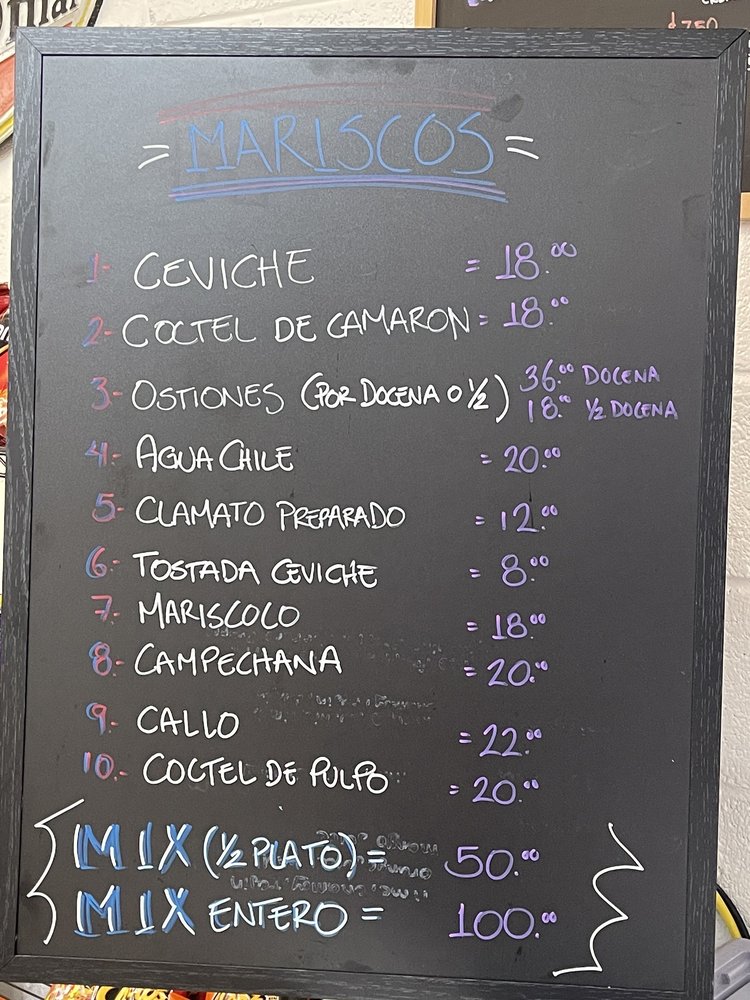 $750
= MARISCOS =
1- CEVICHE = 18.00
2- COCTEL DE CAMARON = 18.00
3- OSTIONES (POR DOCENA O 1/2) 36.00 DOCENA
18.00 1/2 DOCENA
4- AGUA CHILE = 20.00
5- CLAMATO PREPARADO = 12.00
6.- TOSTADA CEVICHE = 8.00
7- MARISCOLO = 18.00
8.- CAMPECHANA = 20.00
9- CALLO = 22.00
10.- COCTEL DE PULPO = 20.00
MIX (1/2 PLATO) = 50.00
MIX ENTERO = 100.00